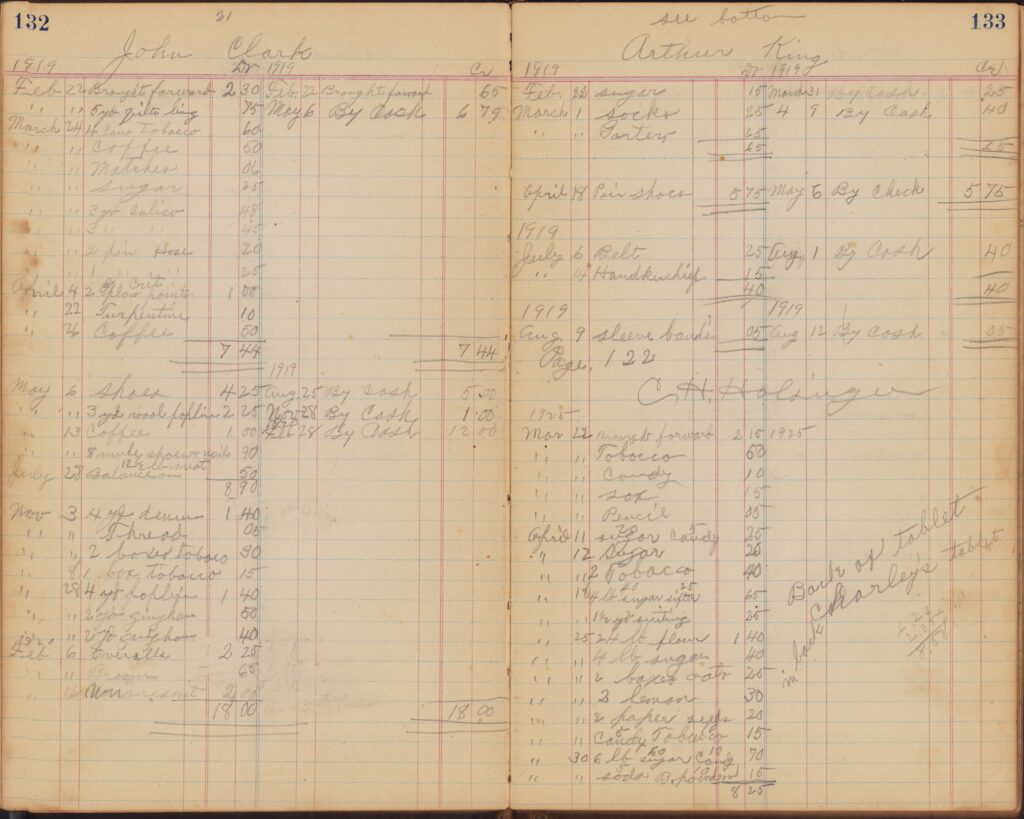 132
31
John Clark
1919 Dr 1919 Cr
Feb 22 Brought forward 2 30 Feb 22 Brought forward 65
" " 5 yd quilt ling 75 May 6 By Cash 6 79
March 24 4 cans Tobacco 60
" " Coffee 50
" " Matches 06
" " Sugar 25
" " 3 yd Calico 48
" " 3 " " 45
" " 2 pair Hose 20
" " 1 " " 25
April 4 2 plow points 1 00
" 22 Turpentine 10
" 26 Coffee 50
7 44 7 44
1919
May 6 shoes 4 25 Aug 25 By Cash 5 00
" " 3 yd wool poplin 2 25 Nov 28 By Cash 1 00
" 13 Coffee 1 00 Feb 28 By Cash 12 00
" " 8 mule shoes nails 90
July 28 Balance on 12½ lb meat 50
8 90
Nov 3 4 yd denim 1 40
" " Thread 05
" " 2 boxes tobaco 30
" 8 1 box tobacco 15
" 28 4 yd poplin 1 40
" " 2 yd gingham 50
" " 2 yd gingham 40
1920
Feb 6 Overalls 2 25
" " Broom 65
" 16 2 00
18 00 18 00
133
see bottom
Arthur King
1919 Dr 1919 Cr
Feb. 22 sugar 15 March 21 By Cash 25
March 1 socks 25 4 9 By Cash 40
" " Garters 25
65 65
April 18 Pair shoes 5 75 May 6 By Check 5 75
1919
July 6 Belt 25 Aug, 1 By Cash 40
" 14 Handkerchief 15
40 40
1919 1919
Aug 9 sleeve bands 05 Aug 12 By Cash 05
Page, 122
C. H. Holsinger
1925
Mar 22 Brought forward 2 15 1925
" " Tobacco 50
" " Candy 10
" " Sox 15
" " Pencil 05
April 11 sugar 20 Candy 5 25
" 12 Sugar 20
" " 2 Tobacco 40
" 18 4 lb sugar 40 25 65
" " 1½ yd suiting 25
" 25 24 lb flour 1 40
" " 4 lb sugar 40
" " 2 boxes oats 25
" " 3 lemon 30
" " 2 paper seeds 20
" " Candy 5 Tobacco 15
" 30 6 lb sugar 60 Candy 10 70
" " soda 5 B. powder 15
8 25
Back of tablet
in back Charley's tablet